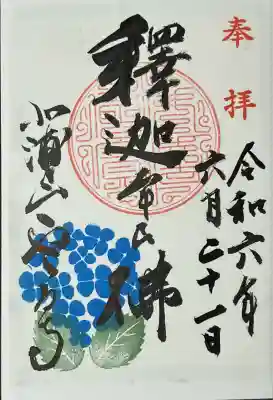 奉拝
令和六年
六月二十一日
釋迦牟尼佛
浦山